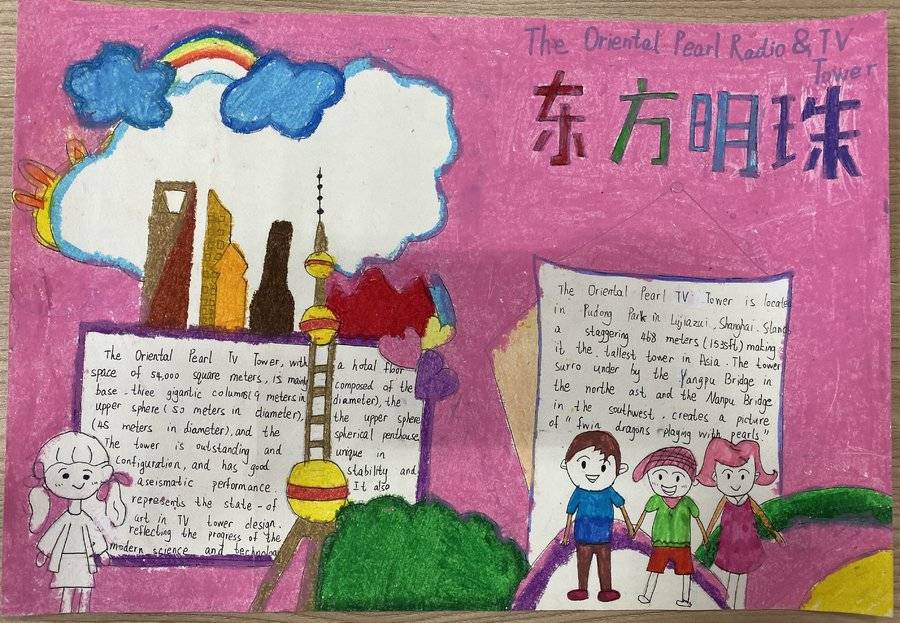 The Oriental Pearl Radio & TV
Tower
东方明珠
The Oriental Pearl Tv Tower, with a hotal floor
space of 54,000 square meters, is mainly composed of the
base, three gigantic columns(9 meters in diameter), the
upper sphere (50 meters in diameter), the upper sphere
(45 meters in diameter), and the spherical penthouse
The tower is outstanding and unique in
configuration, and has good stability and
aseismatic performance. It also
represents the state-of
art in TV tower design.
reflecting the progress of the
modern science and technology
The Oriental Pearl TV Tower is located
in Pudong Park in Lujiazui, Shanghai. Stands
a staggering 468 meters (1535ft) making
it the tallest tower in Asia. The tower
surro under by the Yangpu Bridge in
the northe ast and the Nanpu Bridge
in the southwest, creates a picture
of "twin dragons playing with pearls"